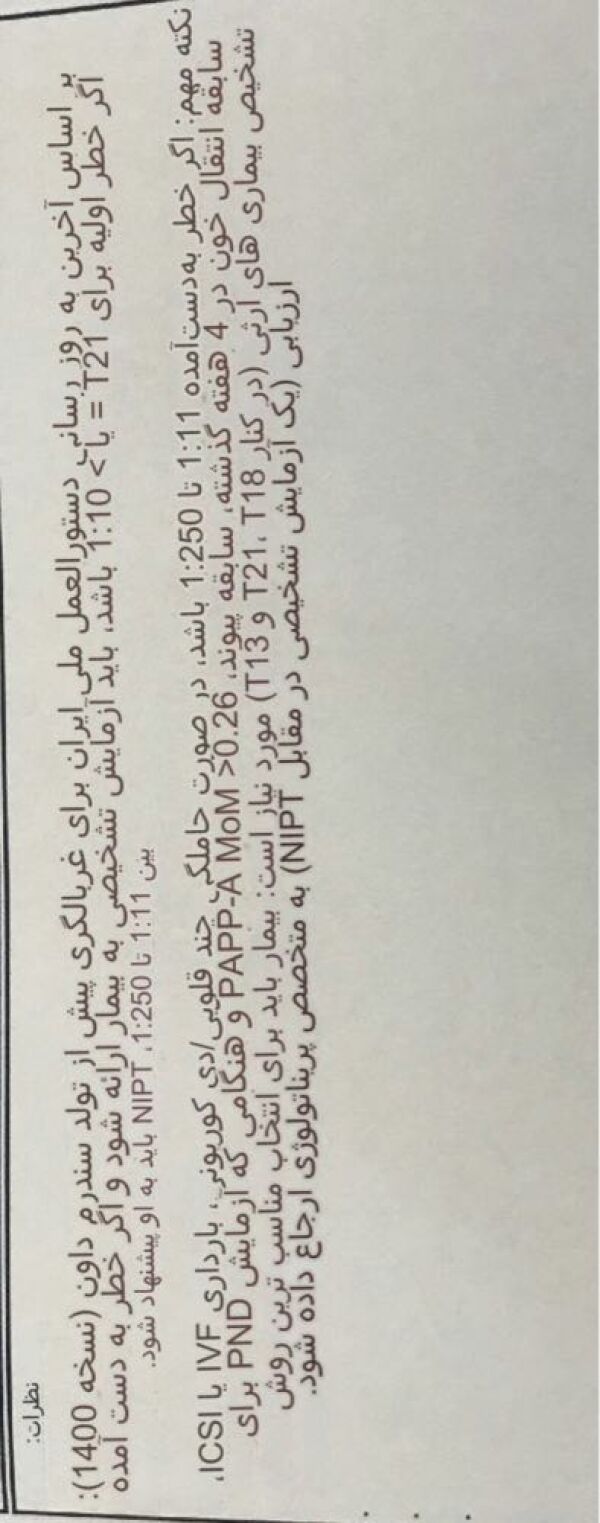 نظرات:
بر اساس آخرین به روز رسانی دستورالعمل ملی ایران برای غربالگری پیش از تولد سندرم داون (نسخه 1400):
اگر خطر اولیه برای T21 = یا > 1:10 باشد، باید آزمایش تشخیصی به بیمار ارائه شود و اگر خطر به دست آمده
بین 1:11 تا 1:250، NIPT باید به او پیشنهاد شود.
نکته مهم: اگر خطر به‌دست‌آمده 1:11 تا 1:250 باشد، در صورت حاملگی چند قلویی/دی کوریونی، بارداری IVF یا ICSI،
سابقه انتقال خون در 4 هفته گذشته، سابقه پیوند، PAPP-A MoM >0.26 و هنگامی که آزمایش PND برای
تشخیص بیماری های ارثی (در کنار T21، T18 و T13) مورد نیاز است: بیمار باید برای انتخاب مناسب ترین روش
ارزیابی (یک آزمایش تشخیصی در مقابل NIPT) به متخصص پریناتولوژی ارجاع داده شود.